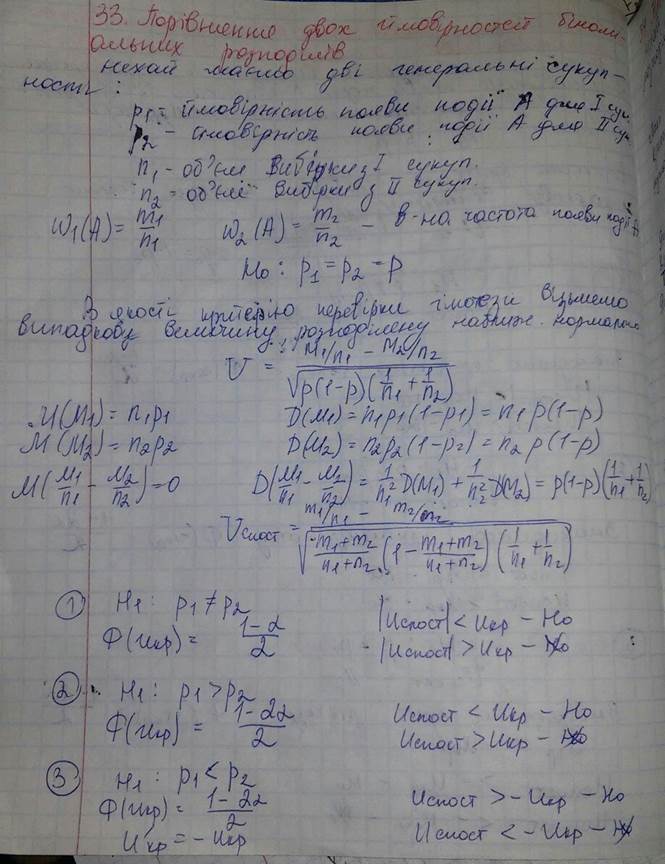 33. Порівняння двох ймовірностей біномі-
альних розподілів
Нехай маємо дві генеральні сукуп-
ності:
p₁ - ймовірність появи події A для I сук.
p₂ - ймовірність появи події A для II сук.
n₁ - об'єм вибірки з I сукуп.
n₂ - об'єм вибірки з II сукуп.
W₁(A) = m₁/n₁ W₂(A) = m₂/n₂ - в-на частота появи події A
H₀ : p₁ = p₂ = p
В якості критерію перевірки гіпотези візьмемо
випадкову величину розподілену наближ. нормально
U = (M₁/n₁ - M₂/n₂) / √(p(1-p)(1/n₁ + 1/n₂))
M(M₁) = n₁p₁ D(M₁) = n₁p₁(1-p₁) = n₁ p(1-p)
M(M₂) = n₂p₂ D(M₂) = n₂p₂(1-p₂) = n₂ p(1-p)
M(M₁/n₁ - M₂/n₂) = 0 D(M₁/n₁ - M₂/n₂) = 1/n₁² D(M₁) + 1/n₂² D(M₂) = p(1-p)(1/n₁ + 1/n₂)
Uспост = (m₁/n₁ - m₂/n₂) / √((m₁+m₂)/(n₁+n₂) (1 - (m₁+m₂)/(n₁+n₂)) (1/n₁ + 1/n₂))
① H₁ : p₁ ≠ p₂ |Uспост| < Uкр - H₀
Φ(Uкр) = (1-α)/2 |Uспост| > Uкр - H̶₀
② H₁ : p₁ > p₂ Uспост < Uкр - H₀
Φ(Uкр) = (1-2α)/2 Uспост > Uкр - H̶₀
③ H₁ : p₁ < p₂
Φ(Uкр) = (1-2α)/2 Uспост > -Uкр - H₀
Uкр = -Uкр Uспост < -Uкр - H̶₀